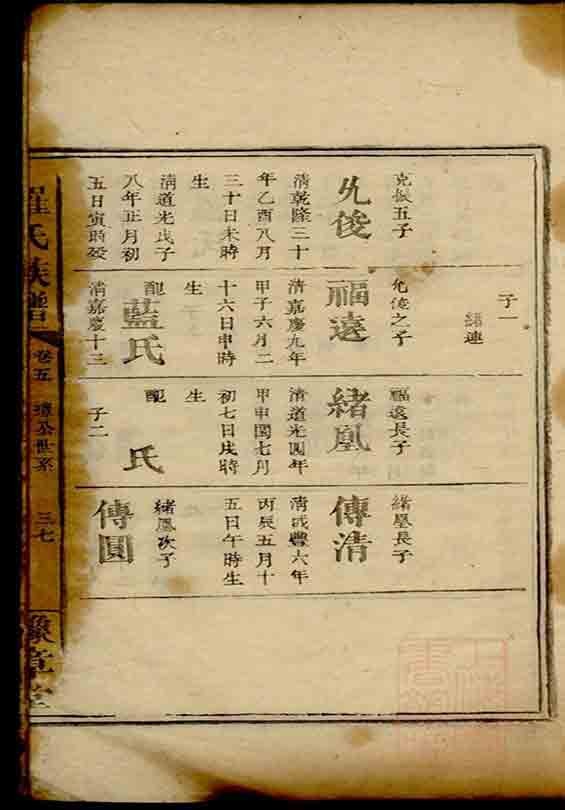 子一
緒連
克振五子
允俊
清乾隆三十
年乙酉八月
三十日未時
生
清道光戊子
八年正月初
五日寅時歿
允俊之子
福遠
清嘉慶九年
甲子六月二
十六日申時
生
配
藍氏
清嘉慶十三
福遠長子
緒凰
清道光四年
甲申閏七月
初七日戌時
生
配
氏
子二
緒凰長子
傳清
清咸豐六年
丙辰五月十
五日午時生
緒凰次子
傳圓
羅氏族譜
卷五
世系
三七
豫章堂